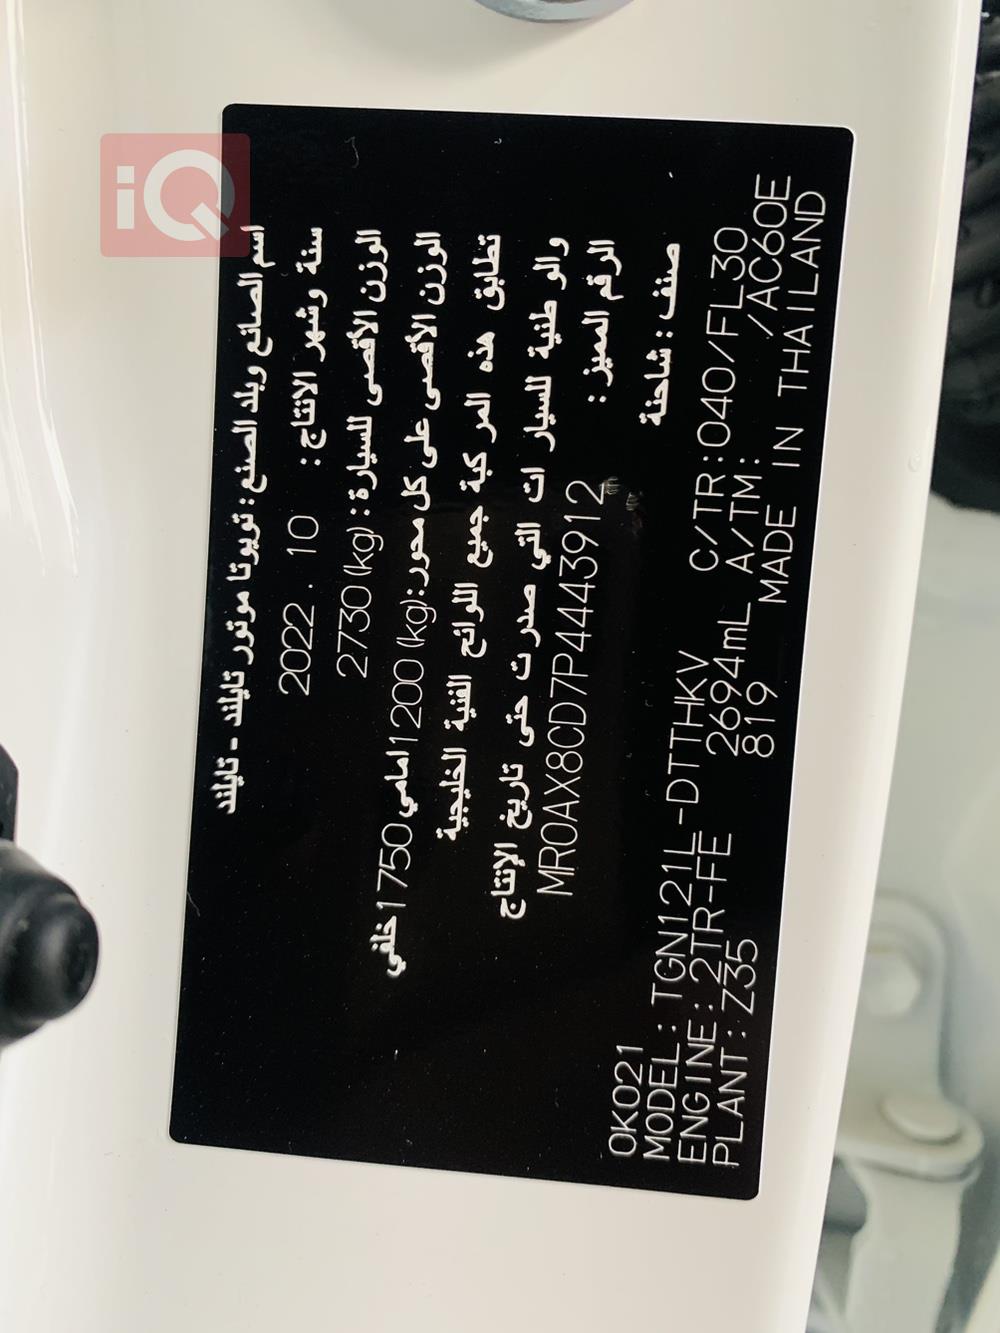 iQ
اسم الصانع وبلد الصنع : تويوتا موتور تايلند - تايلند
سنة وشهر الانتاج : 2022 . 10
الوزن الأقصى للسيارة : 2730 (kg)
الوزن الأقصى على كل محور: (kg) 1200 امامي 1750 خلفي
تطابق هذه المركبة جميع اللوائح الفنية الخليجية
والوطنية للسيارات التي صدرت حتى تاريخ الإنتاج
الرقم المميز : MR0AX8CD7P4443912
صنف : شاحنة
0K021
MODEL : TGN121L-DTTHKV C/TR:040/FL30
ENGINE: 2TR-FE 2694mL A/TM: /AC60E
PLANT: Z35 819 MADE IN THAILAND